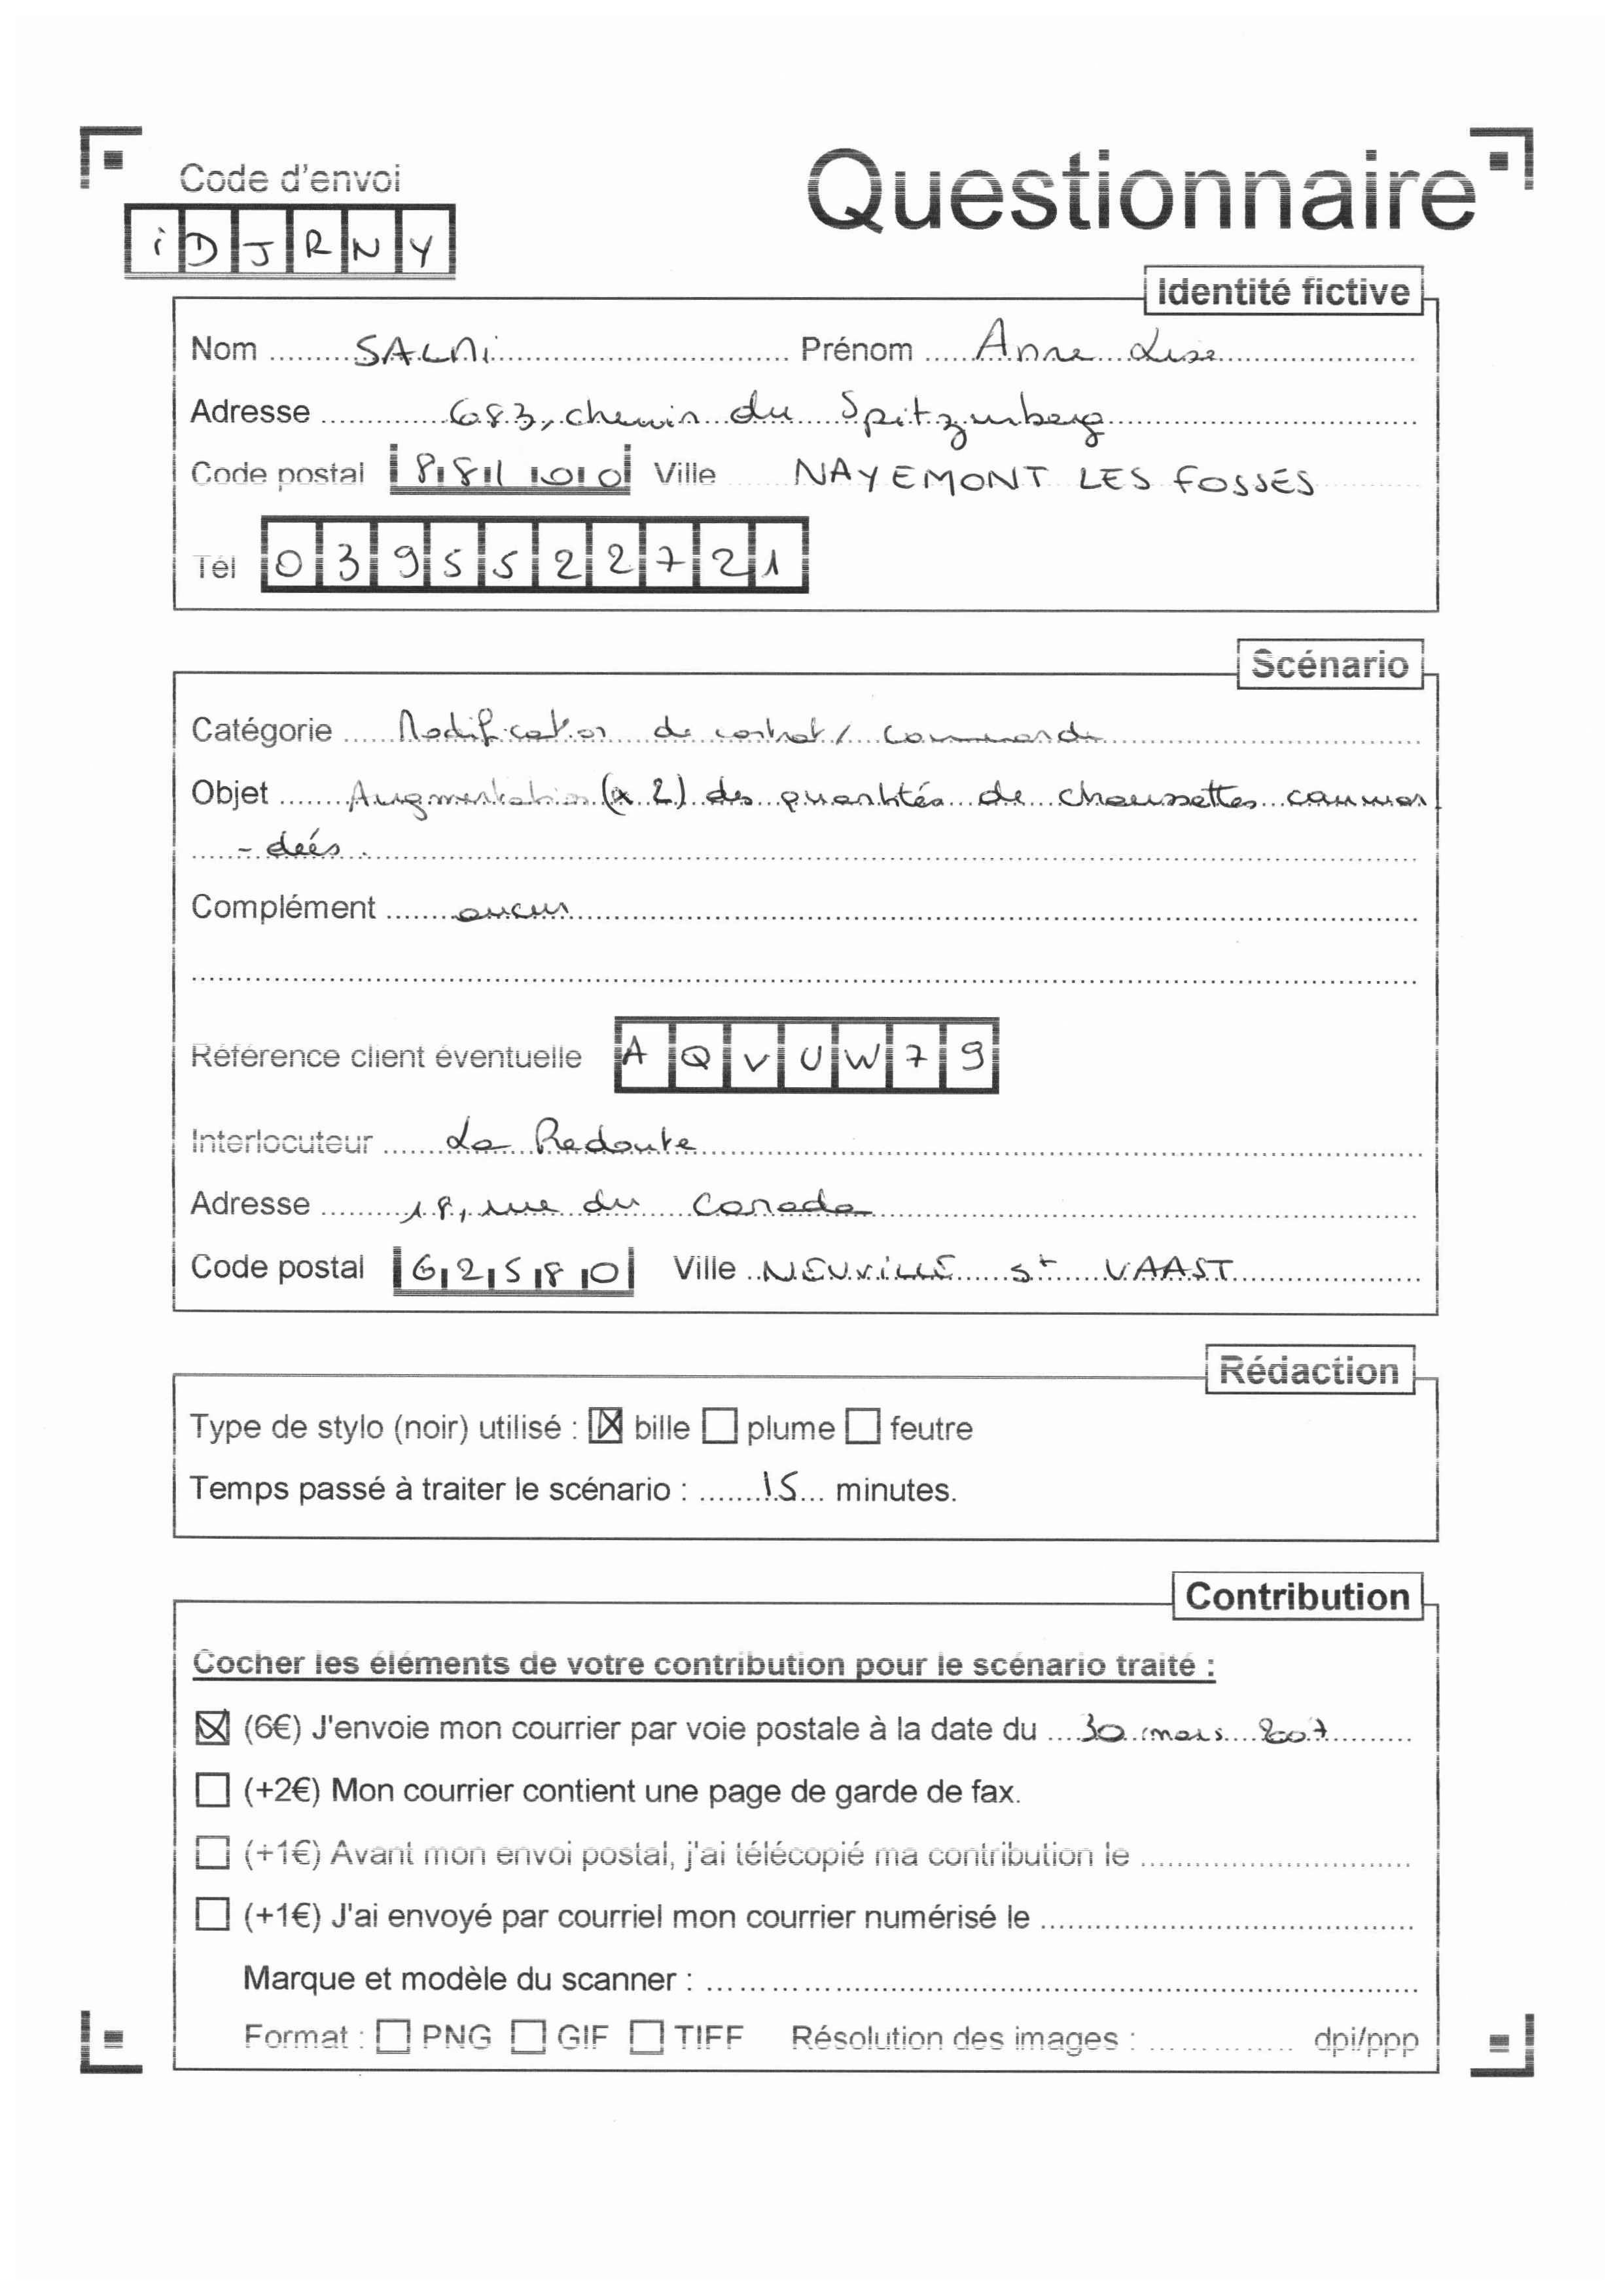 Code d'envoi
Questionnaire
iDJRNY
Identité fictive
Nom SALMI Prénom Anne Lise
Adresse 683, chemin du Spitzemberg
Code postal 88100 Ville NAYEMONT LES FOSSÉS
Tél 0395522721
Scénario
Catégorie Modification de contrat / commande
Objet Augmentation (x 2) des quantités de chaussettes comman
- deés.
Complément aucun
Référence client éventuelle AQVUW79
Interlocuteur La Redoute
Adresse 18, rue du Canada
Code postal 62580 Ville NEUVILLE St VAAST
Rédaction
Type de stylo (noir) utilisé : bille plume feutre
Temps passé à traiter le scénario : 15 minutes.
Contribution
Cocher les éléments de votre contribution pour le scénario traité :
(6€) J'envoie mon courrier par voie postale à la date du 30 mars 2007
(+2€) Mon courrier contient une page de garde de fax.
(+1€) Avant mon envoi postal, j'ai télécopié ma contribution le
(+1€) J'ai envoyé par courriel mon courrier numérisé le
Marque et modèle du scanner :
Format : PNG GIF TIFF Résolution des images : dpi/ppp